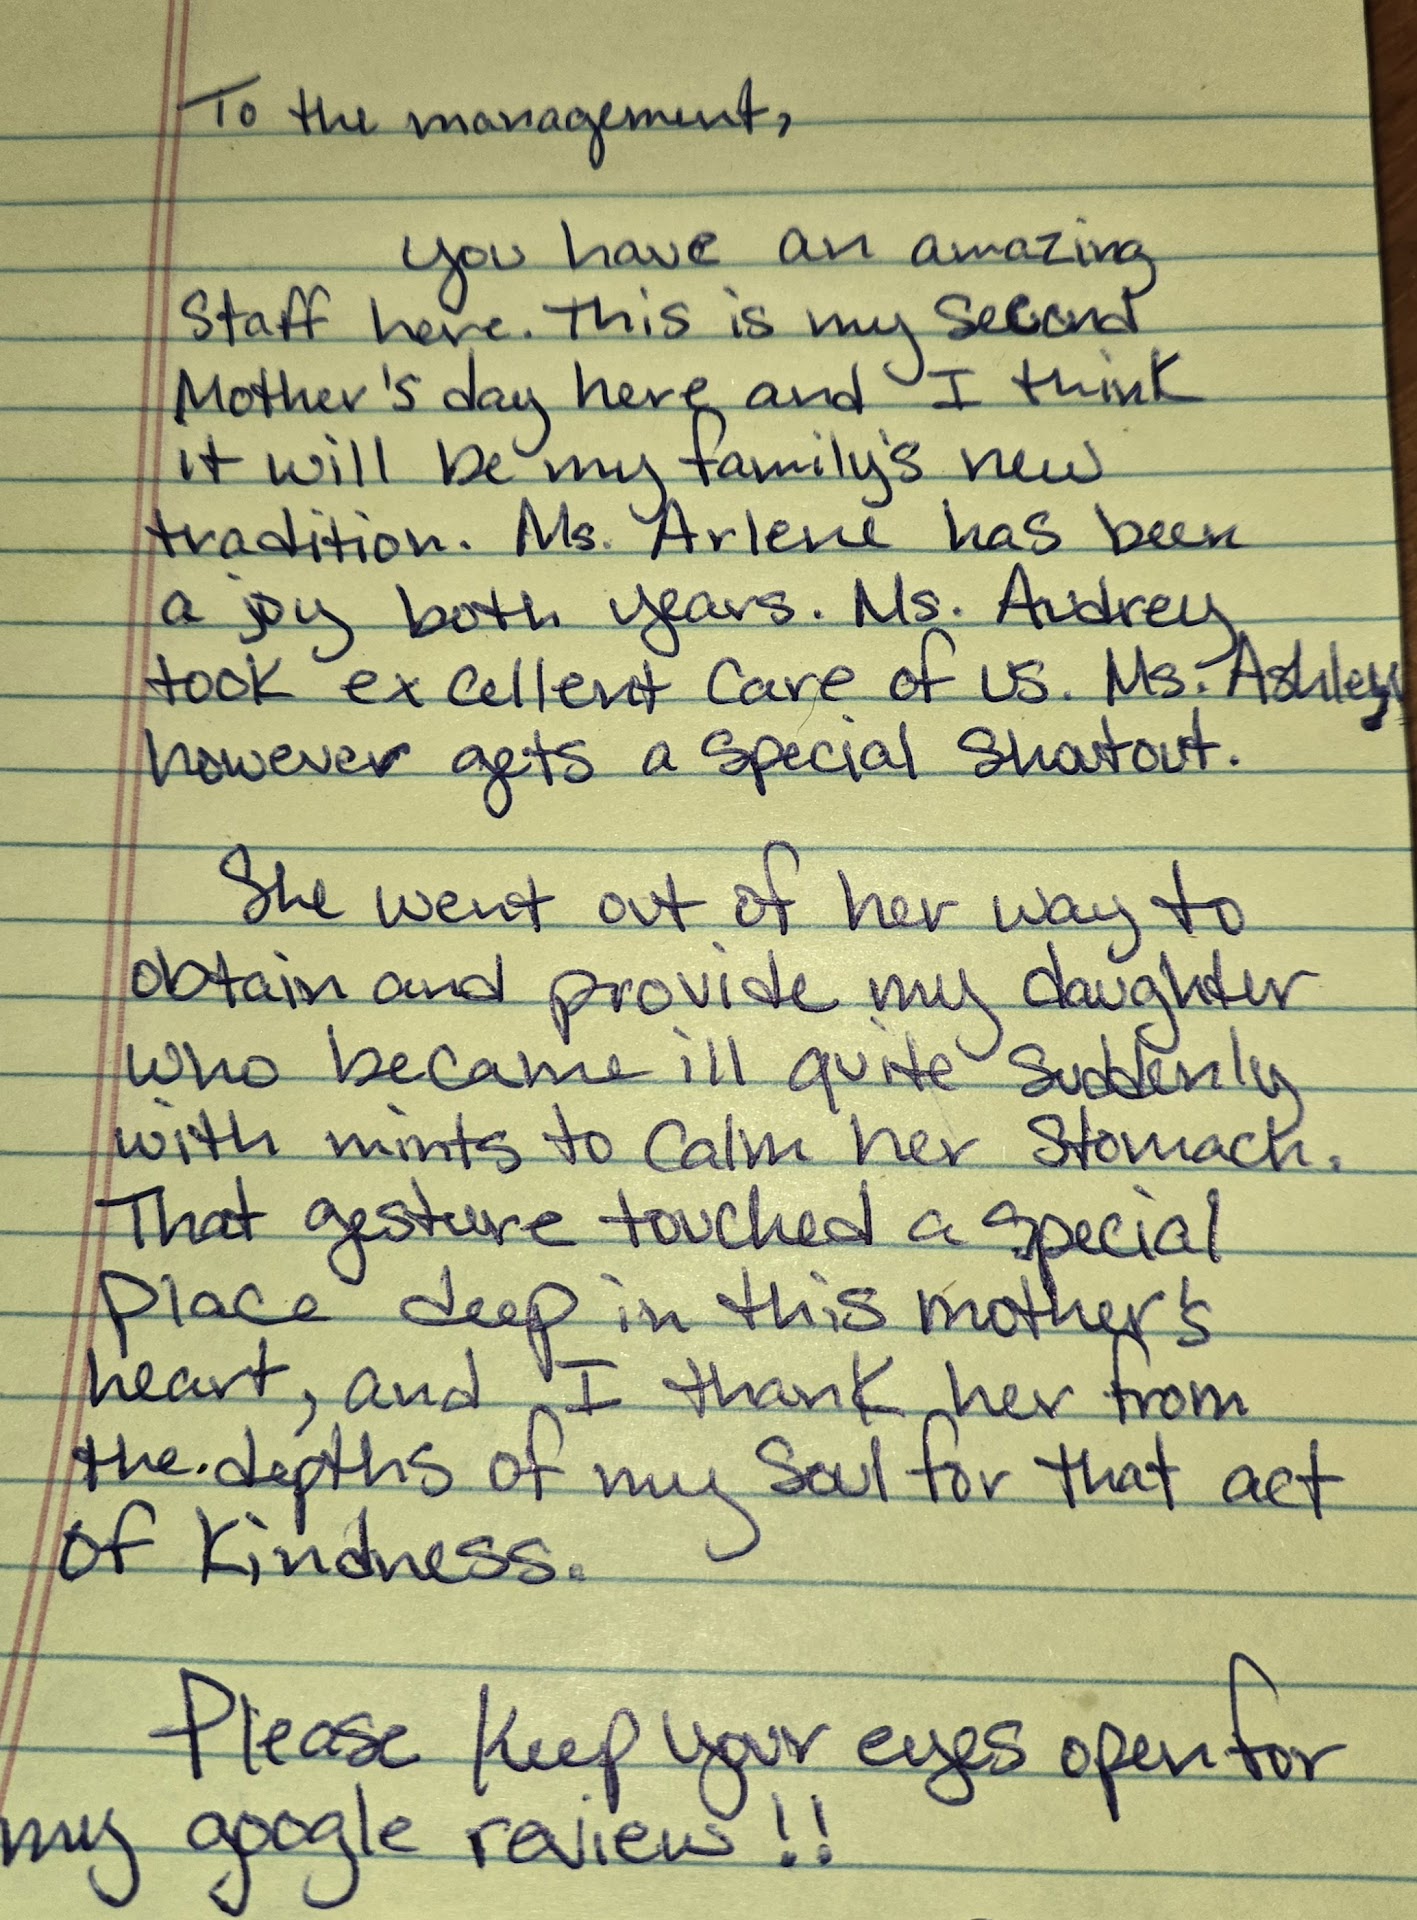 To the management,
you have an amazing
Staff here. This is my second
Mother's day here and I think
it will be my family's new
tradition. Ms. Arlene has been
a joy both years. Ms. Audrey
took excellent care of us. Ms. Ashley
however gets a special shoutout.
She went out of her way to
obtain and provide my daughter
who became ill quite suddenly
with mints to calm her stomach.
That gesture touched a special
place deep in this mother's
heart, and I thank her from
the depths of my soul for that act
of kindness.
Please keep your eyes open for
my google review!!